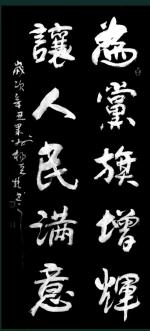 為黨旗增輝
讓人民满意
歲次辛丑